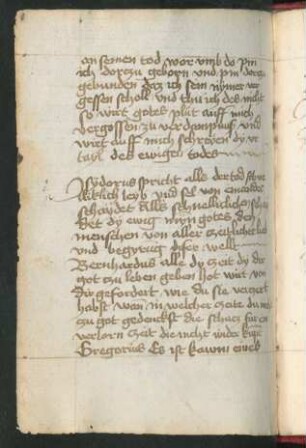 an seinen tod wor vmb do pin
ich dorczu geborn vnd pin dorczu
gebunden daz ich sein nymer ver
gessen scholl vnd thu ich des nicht
so wirt gotes plut auff mich
vergossen zu verdampnus vnd
wirt auff mich schreyen dy vr
tayl des ewigen todes
Isydorus spricht alls der tod
leib vnd sel von einander
schaydet alls schnelliklichen
det dy ewig myn gotes den
menschen von aller zeitlicher lieb
vnd begyrig diser wellt
Bernhardus alle dy zeit dy dir
got zu leben geben hot wirt von
dir gefordert wie du sie verczert
habst wan in welcher zeite du nicht
zu got gedenckst die schacz fur ein
verlorn zeit die nicht wider kumpt
Gregorius Es ist kawm eines